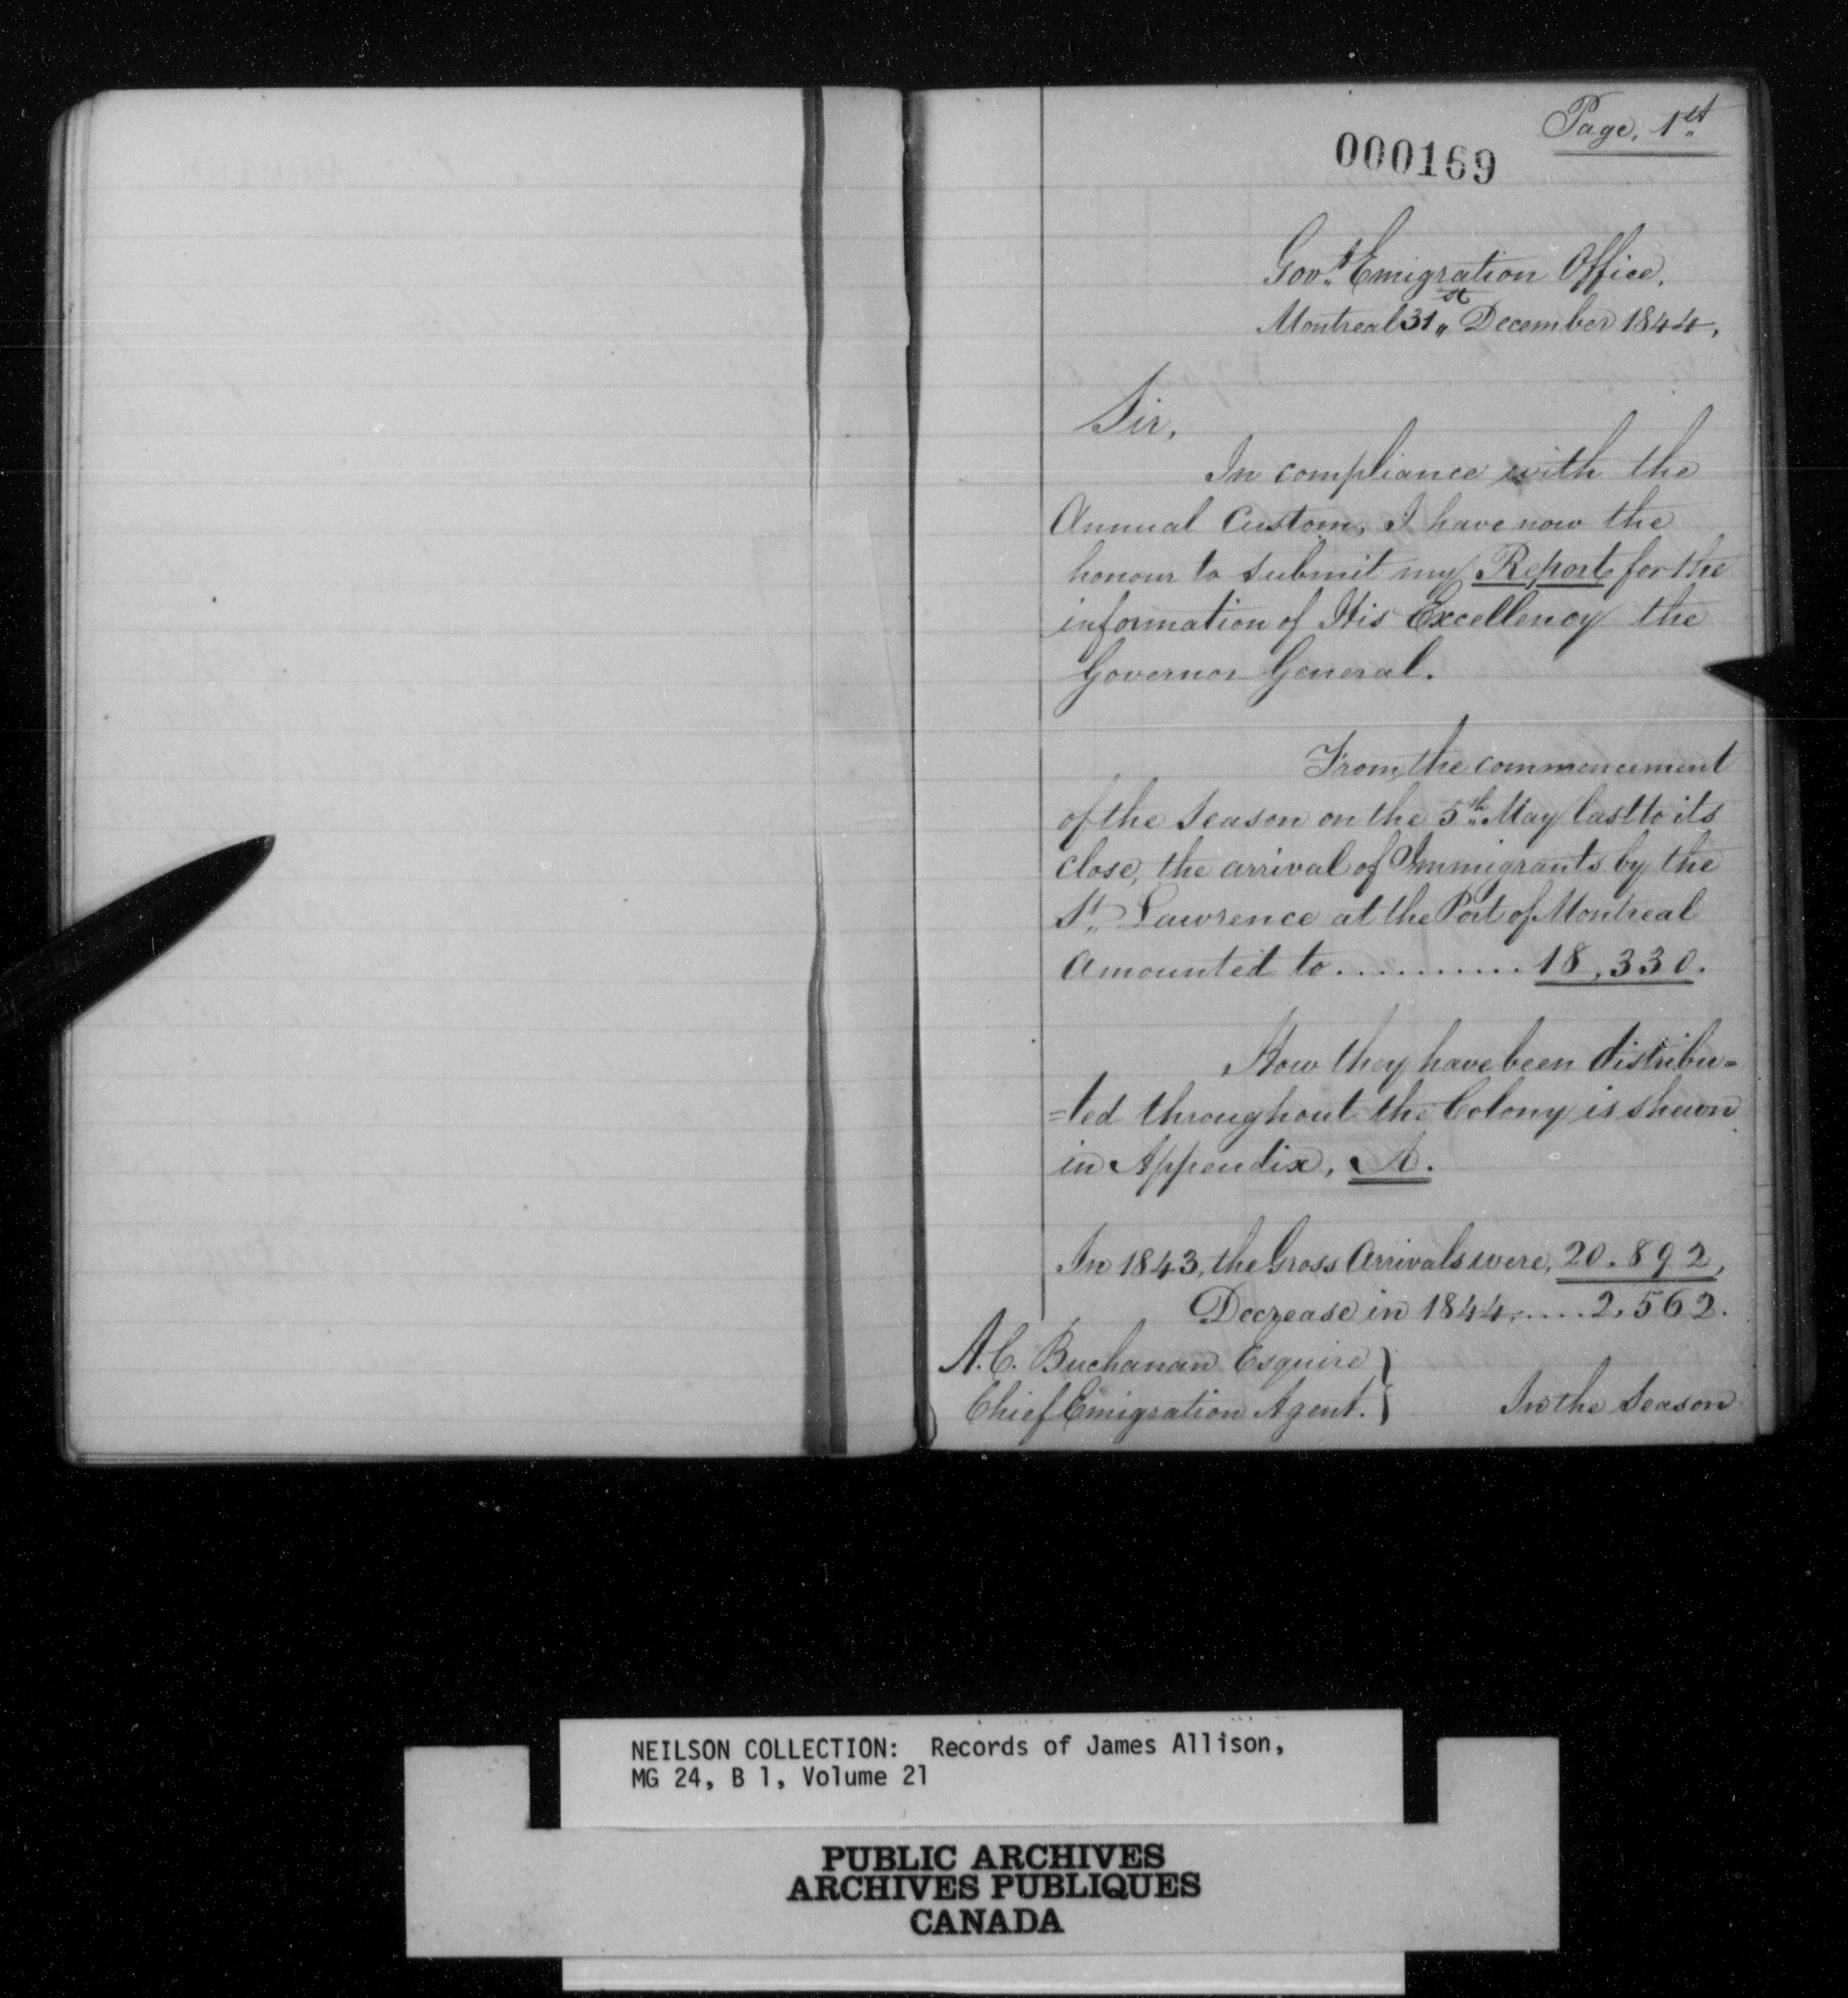 Page, 1st
000169
Govt. Emigration Office,
Montreal 31st December 1844,
Sir,
In compliance with the
Annual Custom, I have now the
honour to submit my Report for the
information of His Excellency the
Governor General.
From the commencement
of the Season on the 5th May last to its
close, the arrival of Immigrants by the
St. Lawrence at the Port of Montreal
Amounted to...........18,330.
How they have been distribu=
=ted throughout the Colony is shewn
in Appendix, A.
In 1843, the Gross Arrivals were, 20.892,
Decrease in 1844,.....2,562.
A.C. Buchanan Esquire }
Chief Emigration Agent. }
In the Season
NEILSON COLLECTION: Records of James Allison,
MG 24, B 1, Volume 21
PUBLIC ARCHIVES
ARCHIVES PUBLIQUES
CANADA